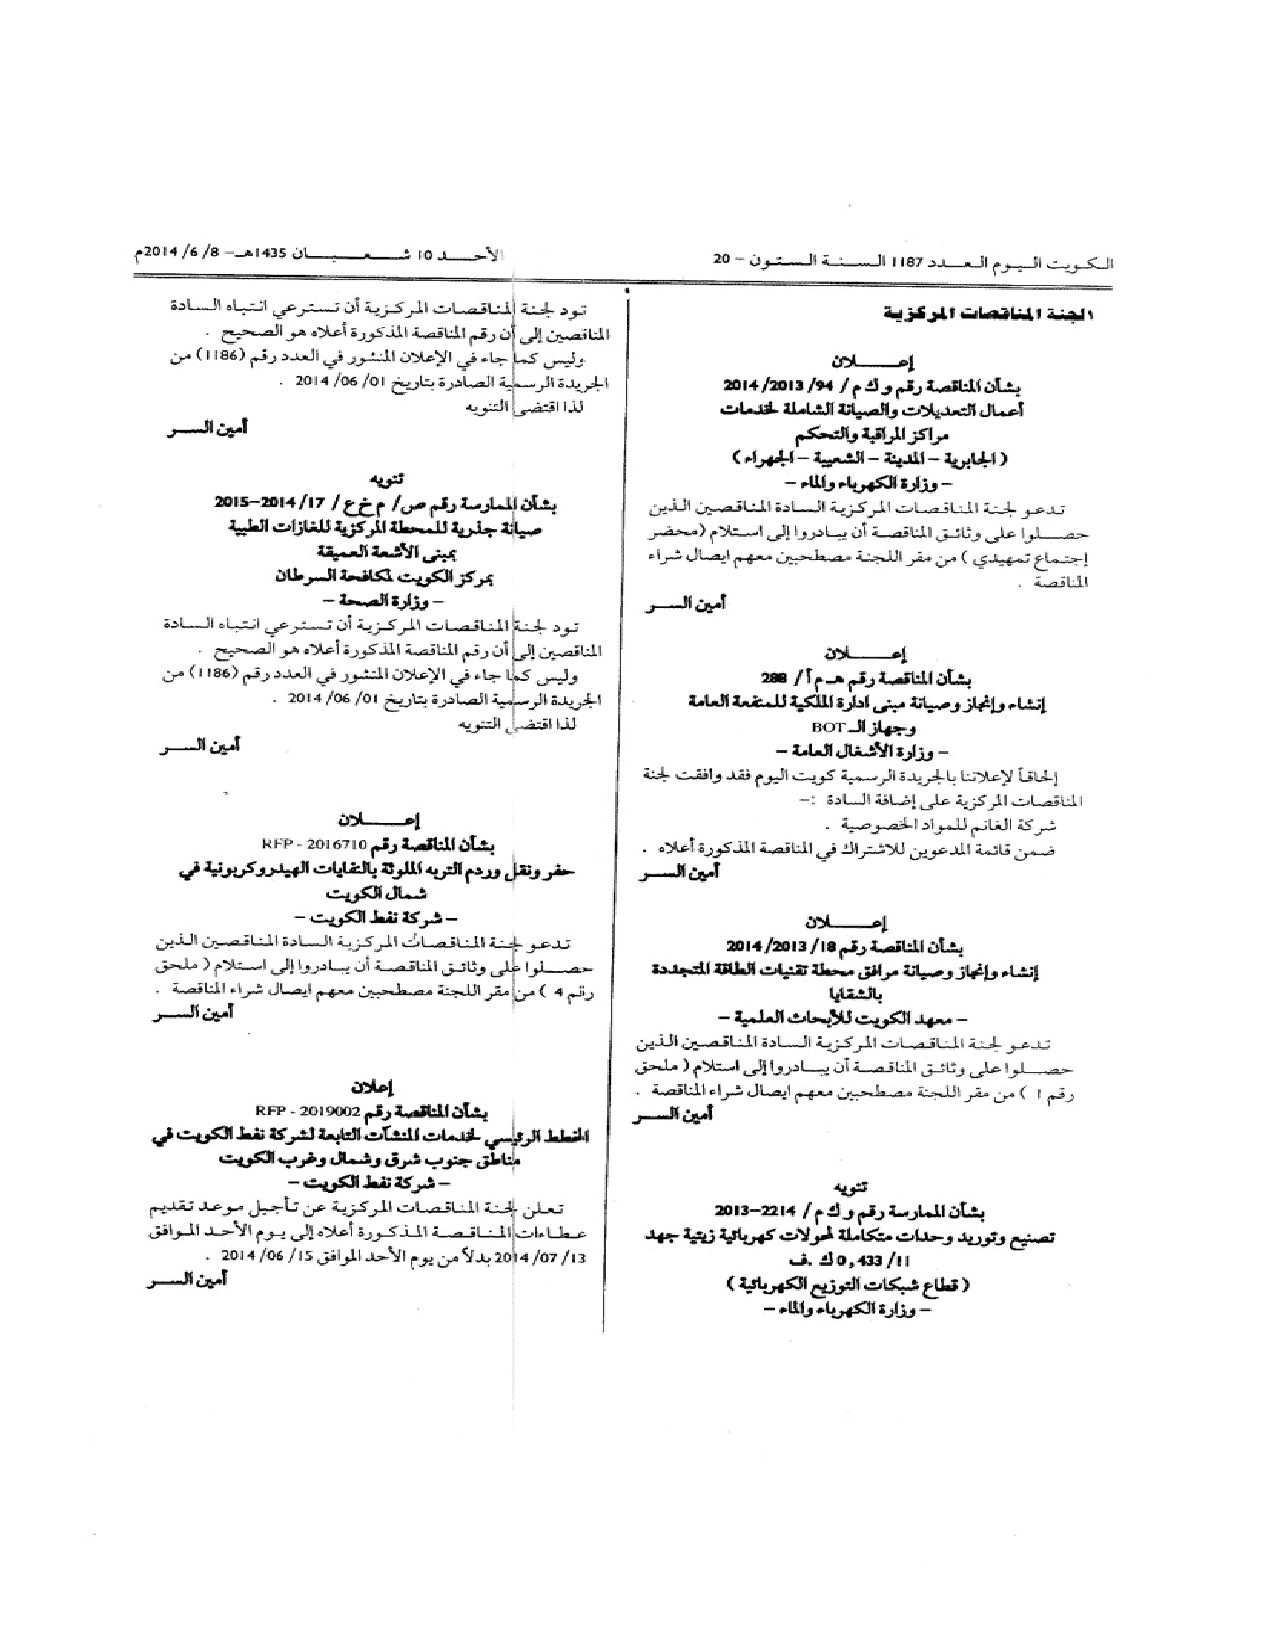 الكويت اليوم العدد 1187 السنة الستون - 20
الأحد 10 شعبان 1435هـ - 8/ 6/ 2014م
لجنة المناقصات المركزية
إعلان
بشأن المناقصة رقم و ك م/ 94/ 2013/ 2014
أعمال التعديلات والصيانة الشاملة لخدمات
مراكز المراقبة والتحكم
(الجابرية - المدينة - الشعبية - الجهراء)
- وزارة الكهرباء والماء -
تدعو لجنة المناقصات المركزية السادة المناقصين الذين
حصلوا على وثائق المناقصة أن يبادروا إلى استلام (محضر
إجتماع تمهيدي) من مقر اللجنة مصطحبين معهم ايصال شراء
المناقصة .
أمين السر
إعلان
بشأن المناقصة رقم هـ م أ/ 288
إنشاء وإنجاز وصيانة مبنى ادارة الملكية للمنفعة العامة
وجهاز الـ BOT
- وزارة الأشغال العامة -
إلحاقاً لإعلاننا بالجريدة الرسمية كويت اليوم فقد وافقت لجنة
المناقصات المركزية على إضافة السادة :-
شركة الغانم للمواد الخصوصية .
ضمن قائمة المدعوين للاشتراك في المناقصة المذكورة أعلاه .
أمين السر
إعلان
بشأن المناقصة رقم 18/ 2013/ 2014
إنشاء وإنجاز وصيانة مرافق محطة تقنيات الطاقة المتجددة
بالشقايا
- معهد الكويت للأبحاث العلمية -
تدعو لجنة المناقصات المركزية السادة المناقصين الذين
حصلوا على وثائق المناقصة أن يبادروا إلى استلام ( ملحق
رقم 1 ) من مقر اللجنة مصطحبين معهم ايصال شراء المناقصة .
أمين السر
تنويه
بشأن الممارسة رقم و ك م/ 2214-2013
تصنيع وتوريد وحدات متكاملة لمحولات كهربائية زيتية جهد
11/ 0,433 ك .ف
(قطاع شبكات التوزيع الكهربائية)
- وزارة الكهرباء والماء -
تود لجنة المناقصات المركزية أن تسترعي انتباه السادة
المناقصين إلى أن رقم المناقصة المذكورة أعلاه هو الصحيح .
وليس كما جاء في الإعلان المنشور في العدد رقم (1186) من
الجريدة الرسمية الصادرة بتاريخ 01/ 06/ 2014 .
لذا اقتضى التنويه
أمين السر
تنويه
بشأن الممارسة رقم ص/ م خ ع/ 17/ 2014-2015
صيانة جذرية للمحطة المركزية للغازات الطبية
بمبنى الأشعة العميقة
بمركز الكويت لمكافحة السرطان
- وزارة الصحة -
تود لجنة المناقصات المركزية أن تسترعي انتباه السادة
المناقصين إلى أن رقم المناقصة المذكورة أعلاه هو الصحيح .
وليس كما جاء في الإعلان المنشور في العدد رقم (1186) من
الجريدة الرسمية الصادرة بتاريخ 01/ 06/ 2014 .
لذا اقتضى التنويه
أمين السر
إعلان
بشأن المناقصة رقم RFP - 2016710
حفر ونقل وردم التربه الملوثة بالنفايات الهيدروكربونية في
شمال الكويت
- شركة نفط الكويت -
تدعو لجنة المناقصات المركزية السادة المناقصين الذين
حصلوا على وثائق المناقصة أن يبادروا إلى استلام ( ملحق
رقم 4 ) من مقر اللجنة مصطحبين معهم ايصال شراء المناقصة .
أمين السر
إعلان
بشأن المناقصة رقم RFP - 2019002
المخطط الرئيسي لخدمات المنشآت التابعة لشركة نفط الكويت في
مناطق جنوب شرق وشمال وغرب الكويت
- شركة نفط الكويت -
تعلن لجنة المناقصات المركزية عن تأجيل موعد تقديم
عطاءات المناقصة المذكورة أعلاه إلى يوم الأحد الموافق
13/ 07/ 2014 بدلاً من يوم الأحد الموافق 15/ 06/ 2014 .
أمين السر